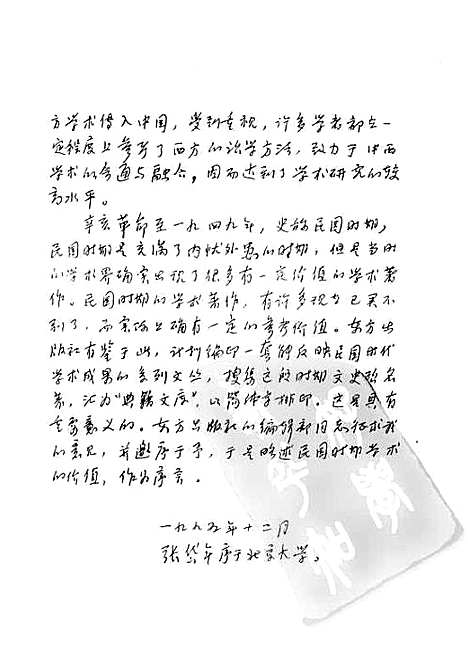 方学术传入中国，受到重视，许多学者都在一
定程度上参考了西方的治学方法，致力于中西
学术的会通与融合，因而达到了学术研究的较
高水平。
辛亥革命至一九四九年，史称民国时期，
民国时期是充满了内忧外患的时期，但是当时
的学术界确实出现了很多有一定价值的学术著
作。民国时期的学术著作，有许多现在已买不
到了，而实际上确有一定的参考价值。东方出
版社有鉴于此，计划编印一套能反映民国时代
学术成果的系列文丛，搜集这段时期文史哲名
著，汇为“典籍文库”，以简体字排印。这是具有
重要意义的。东方出版社的编辑部同志征求我
的意见，并邀序于予，于是略述民国时期学术
的价值，作为序言。
一九九五年十二月
张岱年序于北京大学。